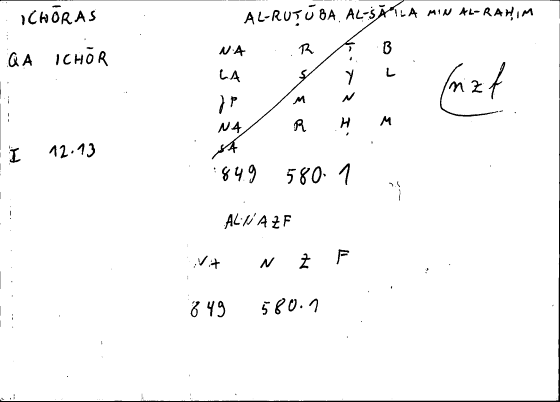 ICHŌRAS
QA ICHŌR
I 12.13
AL-RUṬŪBA AL-SĀ'ILA MIN AL-RAḤIM
NA R Ṭ B
LA S Y L
JP M N
NA R Ḥ M
SA
849 580.1
nzf
AL-NAZF
VA N Z F
849 580.1